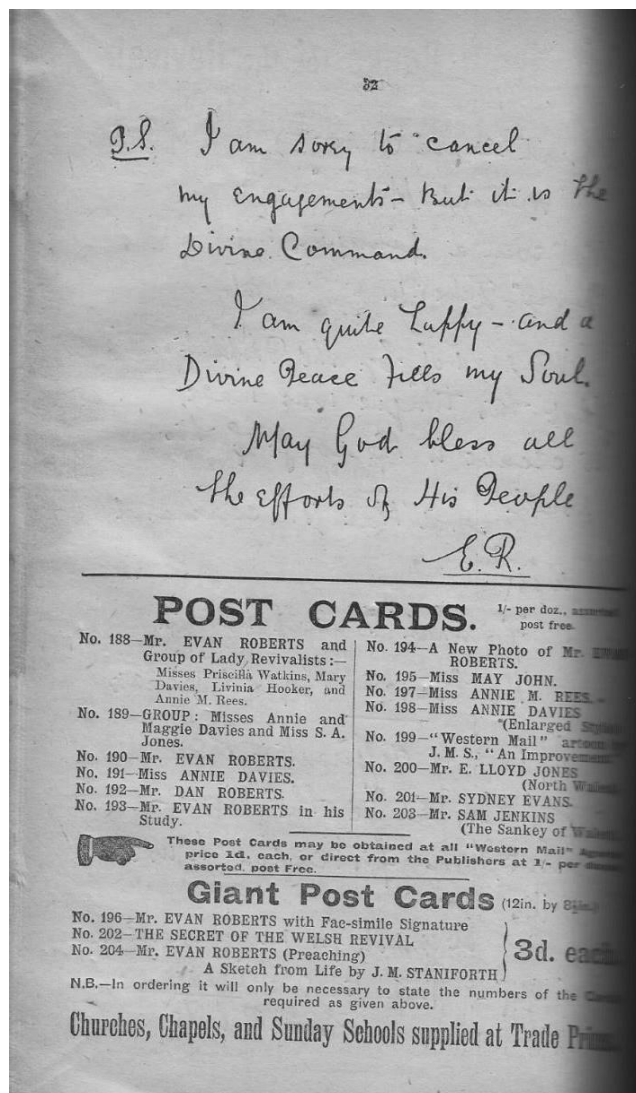 32
P.S. I am sorry to cancel
my engagements – But it is the
Divine Command.
I am quite happy – and a
Divine Peace fills my Soul.
May God bless all
the efforts of His People
E. R.
POST CARDS. 1/- per doz.,
post free.
No. 188—Mr. EVAN ROBERTS and
Group of Lady Revivalists:—
Misses Priscilla Watkins, Mary
Davies, Livinia Hooker, and
Annie M. Rees.
No. 189—GROUP: Misses Annie and
Maggie Davies and Miss S. A.
Jones.
No. 190—Mr. EVAN ROBERTS.
No. 191—Miss ANNIE DAVIES.
No. 192—Mr. DAN ROBERTS.
No. 193—Mr. EVAN ROBERTS in his
Study.
No. 194—A New Photo of Mr.
ROBERTS.
No. 195—Miss MAY JOHN.
No. 197—Miss ANNIE M. REES.
No. 198—Miss ANNIE DAVIES
(Enlarged
No. 199—"Western Mail"
J. M. S., "An Improvement."
No. 200—Mr. E. LLOYD JONES
(North
No. 201—Mr. SYDNEY EVANS.
No. 203—Mr. SAM JENKINS
(The Sankey of
These Post Cards may be obtained at all "Western Mail"
price 1d. each, or direct from the Publishers at 1/- per
assorted, post Free.
Giant Post Cards (12in. by
No. 196—Mr. EVAN ROBERTS with Fac-simile Signature
No. 202—THE SECRET OF THE WELSH REVIVAL
No. 204—Mr. EVAN ROBERTS (Preaching)
A Sketch from Life by J. M. STANIFORTH
3d. each.
N.B.—In ordering it will only be necessary to state the numbers of the
required as given above.
Churches, Chapels, and Sunday Schools supplied at Trade